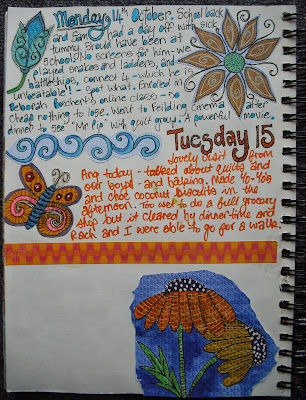 Monday 14th October. School back
and Sam had a day off with sick
tummy. Should have been at
school! No screens for him - we
played snakes and ladders, and
battleships, connect 4 - which he is
unbeatable! - Spot what. Enrolled in
Deborah Boschert's online class - so
cheap nothing to lose. Went to Feilding cinema after
dinner to see "Mr Pip" with quilt group. A powerful movie.
Tuesday 15
Lovely visit from
Ang today - talked about quilts and
our boys! - and baking. Made yo-yo's
and choc coconut biscuits in the
afternoon. Too wet to do a full grocery
shop but it cleared by dinner-time and
Rach and I were able to go for a walk.